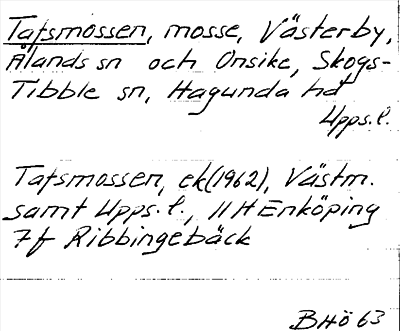 Tafsmossen, mosse, Västerby,
Ålands sn och Onsike, Skogs-
Tibble sn, Hagunda hd
Upps.l.
Tafsmossen, ek(1962), Västm.
samt Upps.l., 11H Enköping
7f Ribbingebäck
BHö 63